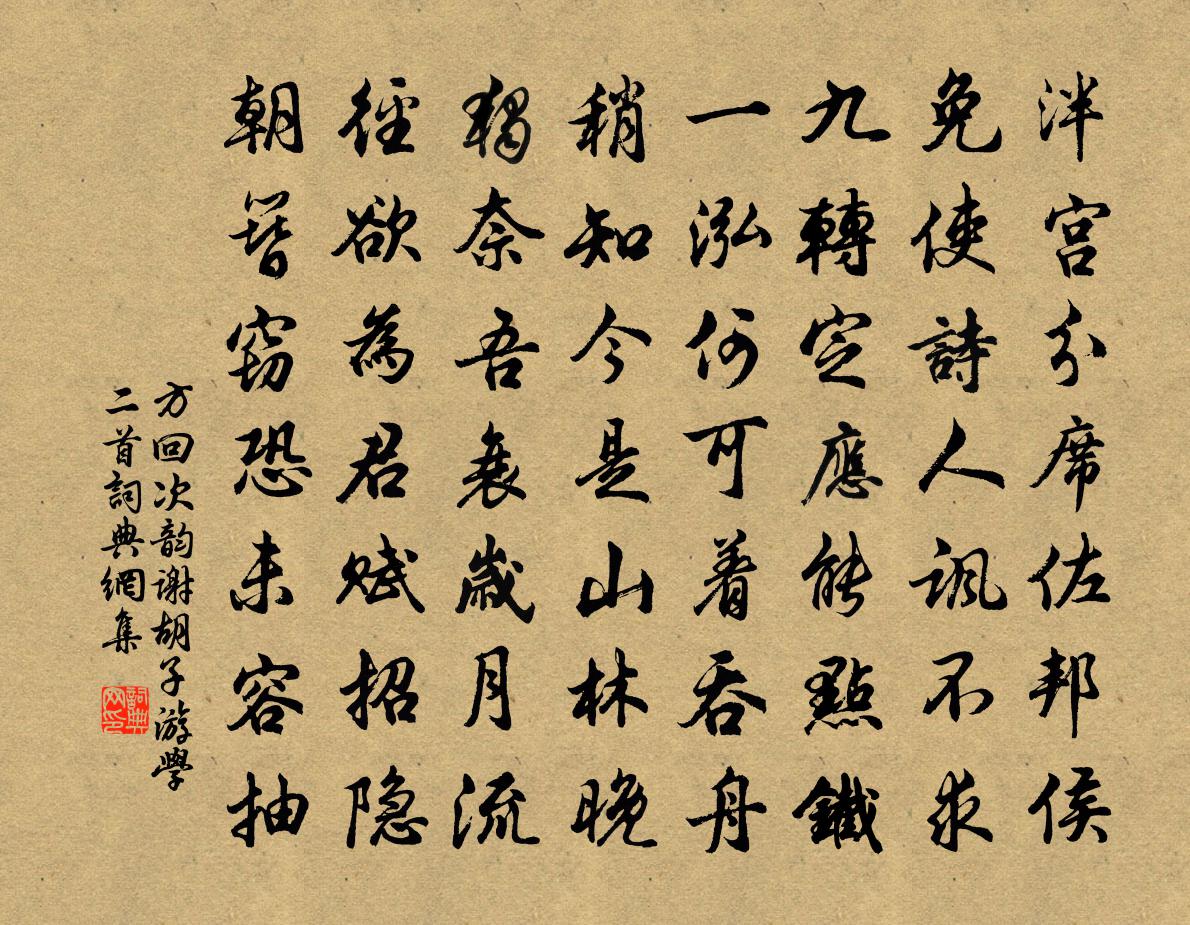 泮宫分席佐邦侯
免使詩人諷不求
九轉定應能點鐵
一泓何可着吞舟
稍知今是山林晚
獨奈吾衰歲月流
徑欲為君賦招隐
朝簪窃恐未容抽
方回次韵谢胡子游學
二首詞典網集
詞典网印